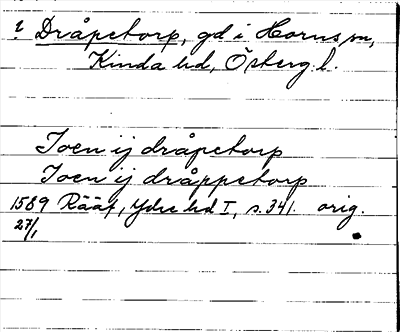 ? Dråpetorp, gd i Horns sn,
Kinda hd, Österg. l.
Joen ij dråpetorp
Joen ij dråppetorp
1589 Rääf, Ydre hd I, s. 341. orig.
27/1